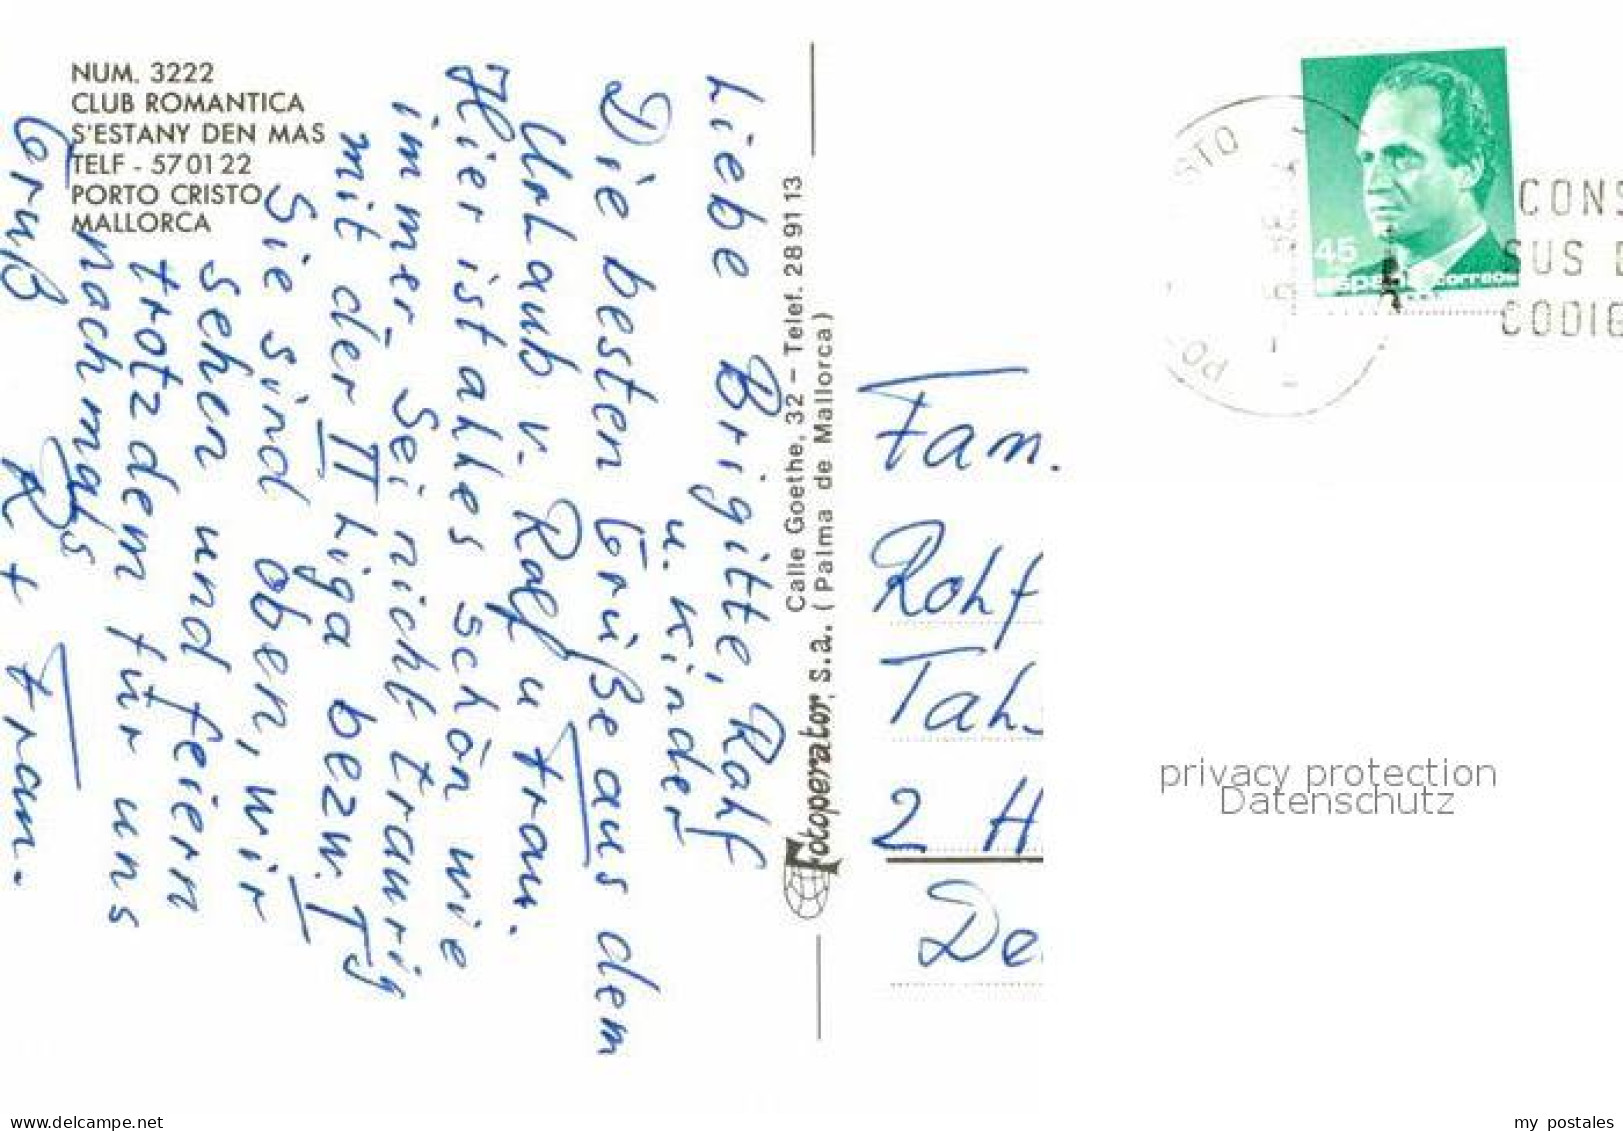 NUM. 3222
CLUB ROMANTICA
S'ESTANY DEN MAS
TELF - 570122
PORTO CRISTO
MALLORCA
Liebe Brigitte, Ralf
u. Kinder
Die besten Grüße aus dem
Urlaub v. Rolf u Fram.
Hier ist alles schön wie
immer. Sei nicht traurig
mit der II Liga bezw. I
Sie sind oben, wir
sehen und feiern
trotzdem für uns
nachmals
Gruß R + Fram.
Calle Goethe, 32 - Telef. 28 91 13
Fotoperator, s.a. (Palma de Mallorca)
45
España correos
STO
PO
CONS
SUS D
CODIG
Fam.
Rolf
Tal
2 H
De
privacy protection
Datenschutz
delcampe.net
my_postales